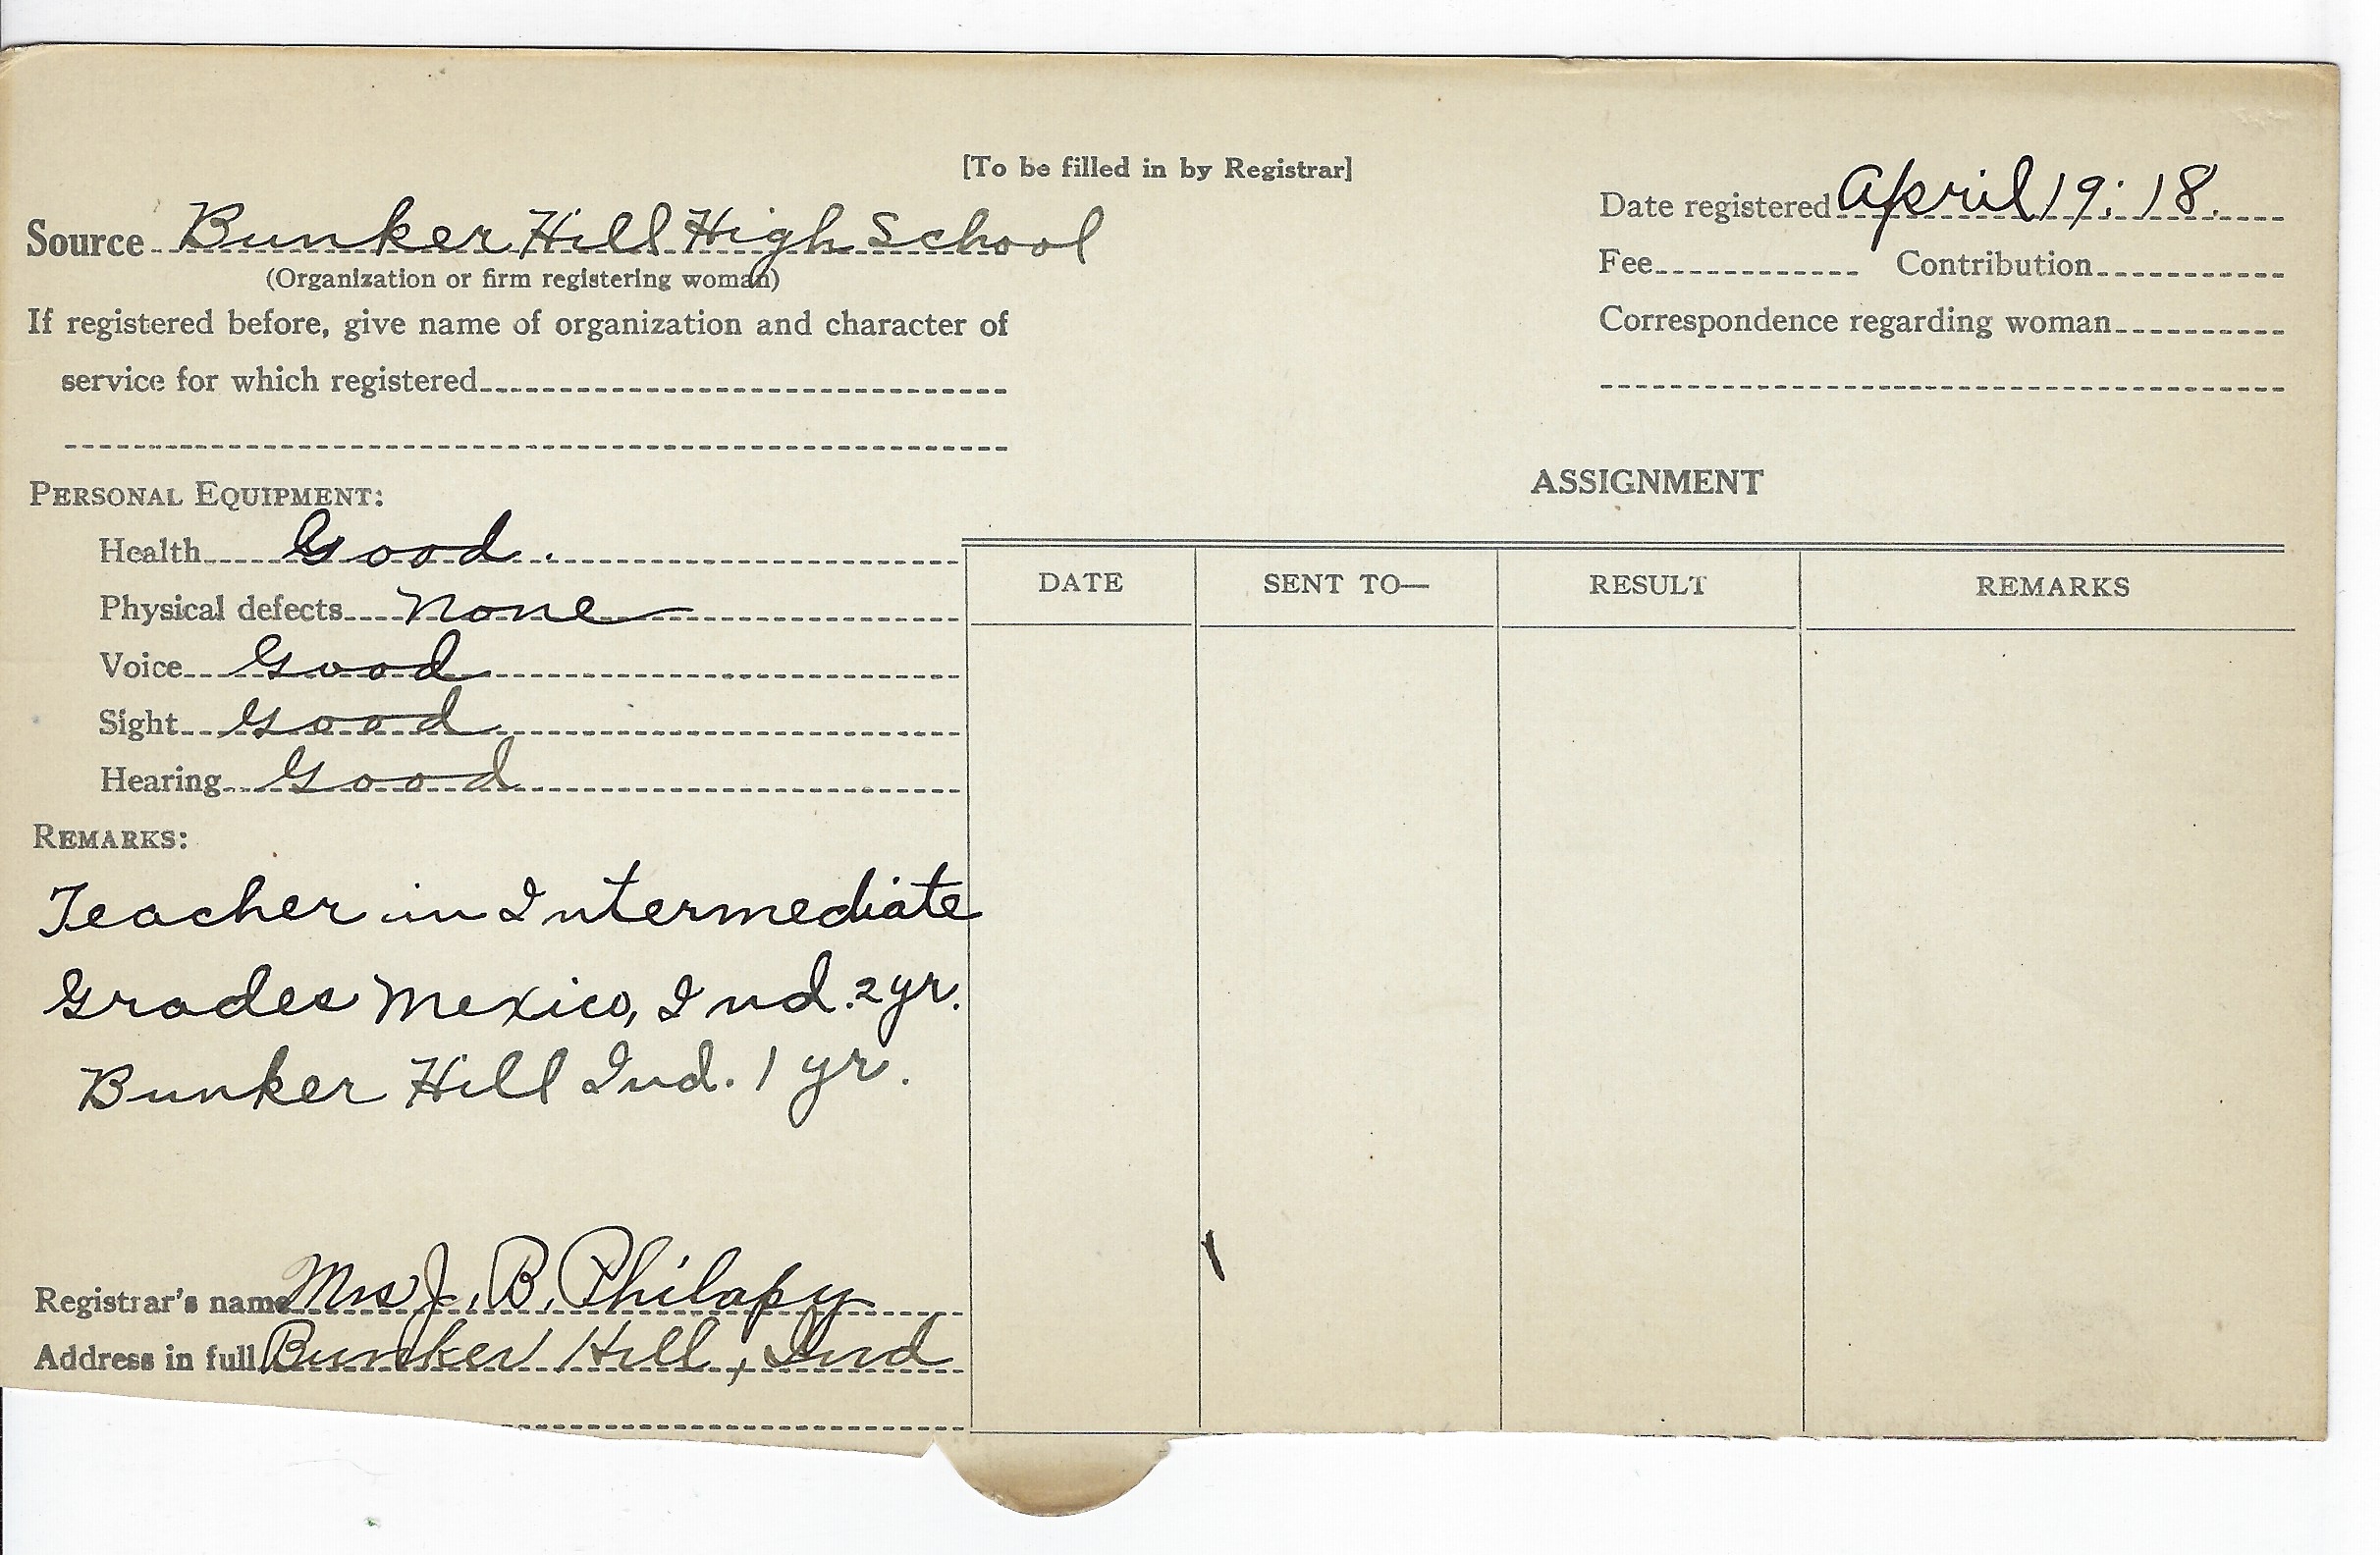 [To be filled in by Registrar]
Source Bunker Hill High School
(Organization or firm registering woman)
If registered before, give name of organization and character of
service for which registered
Date registered April 19: 18.
Fee Contribution
Correspondence regarding woman
PERSONAL EQUIPMENT:
Health Good.
Physical defects None
Voice Good
Sight Good
Hearing Good
REMARKS:
Teacher in Intermediate
Grades Mexico, Ind. 2 yr.
Bunker Hill Ind. 1 yr.
Registrar's name Mrs J. B. Philapy
Address in full Bunker Hill, Ind
ASSIGNMENT
DATE SENT TO— RESULT REMARKS